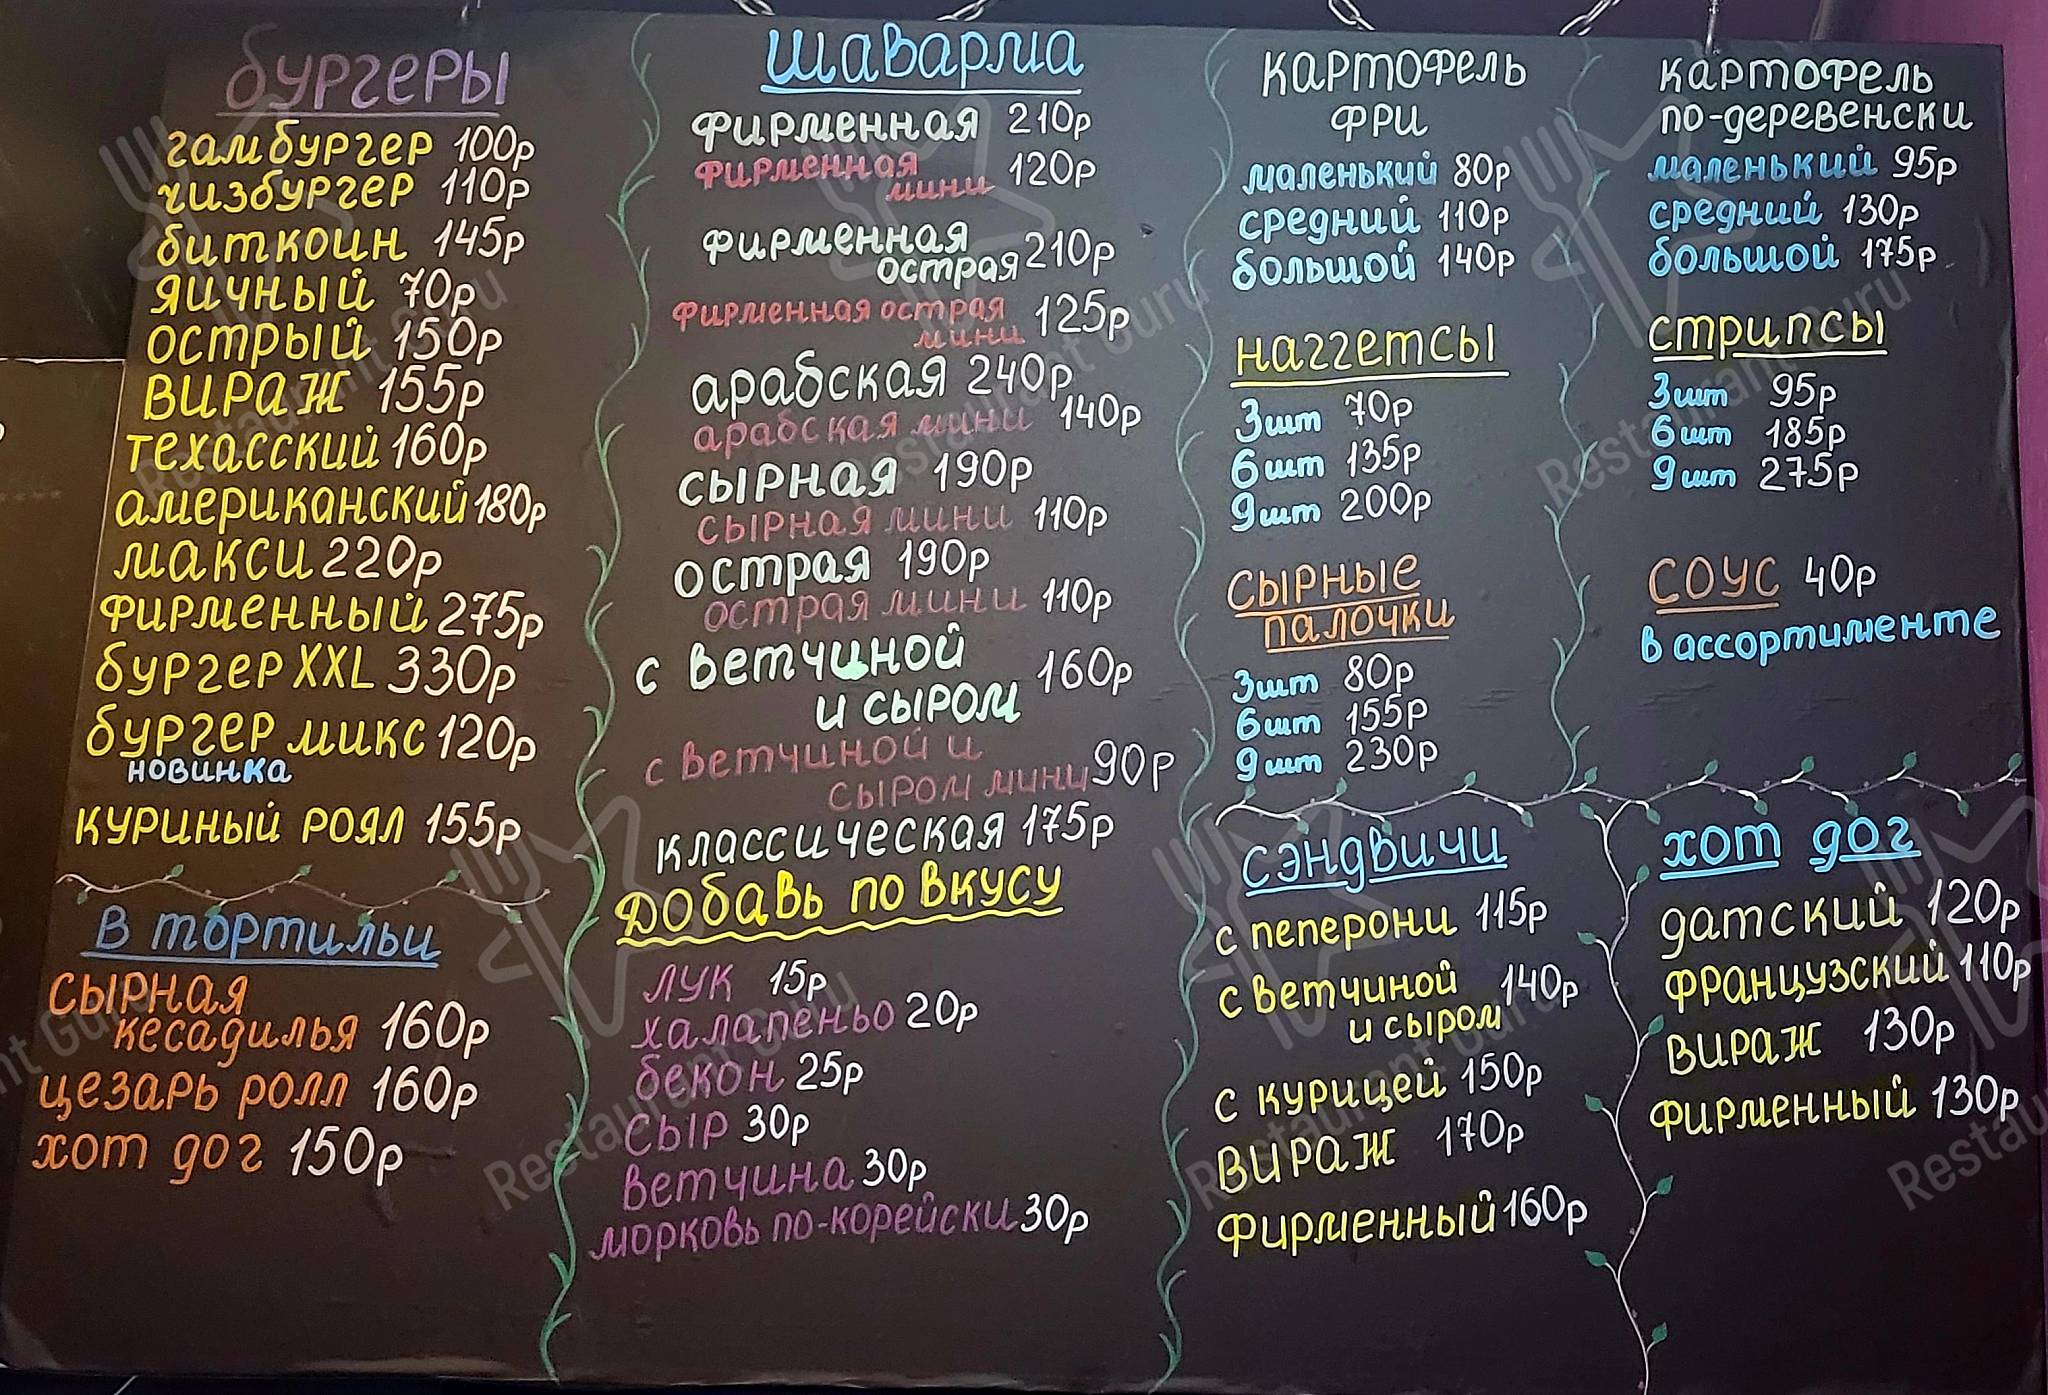 бургеры
гамбургер 100р
чизбургер 110р
биткоин 145р
яичный 70р
острый 150р
вираж 155р
техасский 160р
американский 180р
макси 220р
фирменный 275р
бургер XXL 330р
бургер микс 120р
новинка
куриный роял 155р
в тортильи
сырная
кесадилья 160р
цезарь ролл 160р
хот дог 150р
шаварма
фирменная 210р
фирменная
мини 120р
фирменная
острая 210р
фирменная острая
мини 125р
арабская 240р
арабская мини 140р
сырная 190р
сырная мини 110р
острая 190р
острая мини 110р
с ветчиной
и сыром 160р
с ветчиной и
сыром мини 90р
классическая 175р
добавь по вкусу
лук 15р
халапеньо 20р
бекон 25р
сыр 30р
ветчина 30р
морковь по-корейски 30р
картофель
фри
маленький 80р
средний 110р
большой 140р
наггетсы
3шт 70р
6шт 135р
9шт 200р
сырные
палочки
3шт 80р
6шт 155р
9шт 230р
картофель
по-деревенски
маленький 95р
средний 130р
большой 175р
стрипсы
3шт 95р
6шт 185р
9шт 275р
соус 40р
в ассортименте
сэндвичи
с пеперони 115р
с ветчиной
и сыром 140р
с курицей 150р
вираж 170р
фирменный 160р
хот дог
датский 120р
французский 110р
вираж 130р
фирменный 130р
Restaurant Guru
Restaurant Guru
Restaurant Guru
Restaurant Guru
Restaurant Guru